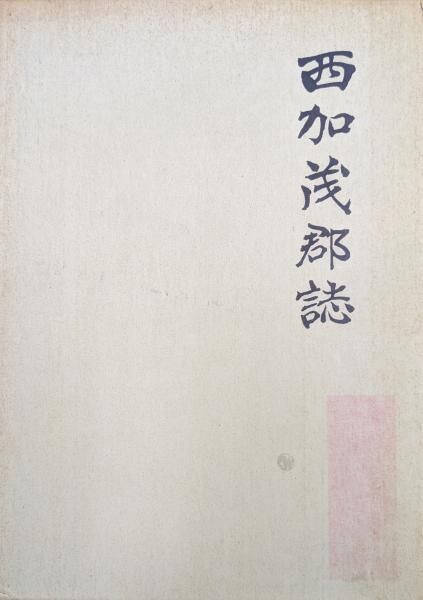 西加茂郡誌